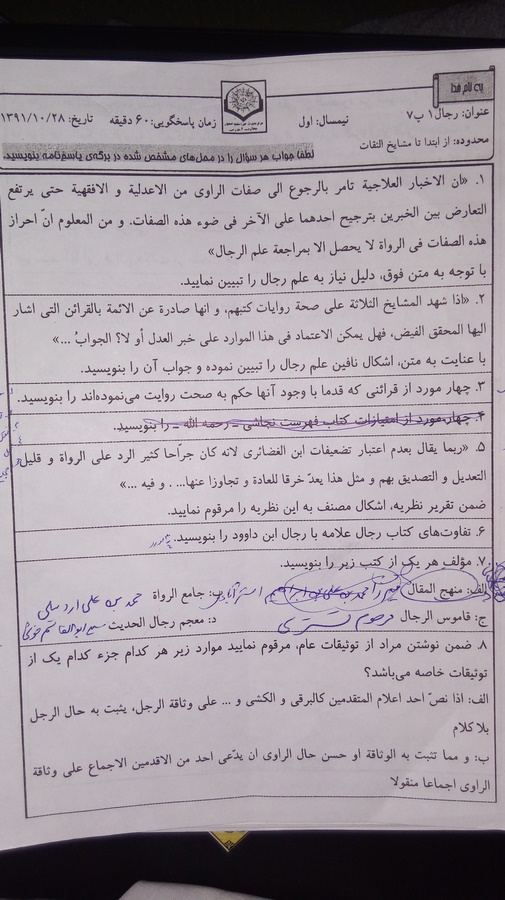 به نام خدا
عنوان: رجال ۱ پ۷
نیمسال: اول
زمان پاسخگویی: ۶۰ دقیقه
تاریخ: ۱۳۹۱/۱۰/۲۸
محدوده: از ابتدا تا مشایخ الثقات
لطفا جواب هر سؤال را در محل‌های مشخص شده در برگه‌ی پاسخ‌نامه بنویسید.
۱. «ان الاخبار العلاجیة تامر بالرجوع الی صفات الراوی من الاعدلیة و الافقهیة حتی یرتفع
التعارض بین الخبرین بترجیح احدهما علی الآخر فی ضوء هذه الصفات. و من المعلوم انّ احراز
هذه الصفات فی الرواة لا یحصل الا بمراجعة علم الرجال»
با توجه به متن فوق، دلیل نیاز به علم رجال را تبیین نمایید.
۲. «اذا شهد المشایخ الثلاثة علی صحة روایات کتبهم، و انها صادرة عن الائمة بالقرائن التی اشار
الیها المحقق الفیض، فهل یمکن الاعتماد فی هذا الموارد علی خبر العدل أو لا؟ الجوابُ ...»
با عنایت به متن، اشکال نافین علم رجال را تبیین نموده و جواب آن را بنویسید.
۳. چهار مورد از قرائنی که قدما با وجود آنها حکم به صحت روایت می‌نموده‌اند را بنویسید.
۴. چهار مورد از امتیازات کتاب فهرست نجاشی - رحمه الله - را بنویسید.
۵. «ربما یقال بعدم اعتبار تضعیفات ابن الغضائری لانه کان جراّحا کثیر الرد علی الرواة و قلیل
التعدیل و التصدیق بهم و مثل هذا یعدّ خرقا للعادة و تجاوزا عنها... . و فیه ...»
ضمن تقریر نظریه، اشکال مصنف به این نظریه را مرقوم نمایید.
۶. تفاوت‌های کتاب رجال علامه با رجال ابن داوود را بنویسید.
۷. مؤلف هر یک از کتب زیر را بنویسید.
الف: منهج المقال میرزا محمد بن علی بن ابراهیم استرآبادی ب: جامع الرواة محمد بن علی اردبیلی
ج: قاموس الرجال مرحوم تستری د: معجم رجال الحدیث سید ابوالقاسم خوئی
۸. ضمن نوشتن مراد از توثیقات عام، مرقوم نمایید موارد زیر هر کدام جزء کدام یک از
توثیقات خاصه می‌باشد؟
الف: اذا نصّ احد اعلام المتقدمین کالبرقی و الکشی و ... علی وثاقة الرجل، یثبت به حال الرجل
بلا کلام
ب: و مما تثبت به الوثاقة او حسن حال الراوی ان یدّعی احد من الاقدمین الاجماع علی وثاقة
الراوی اجماعا منقولا